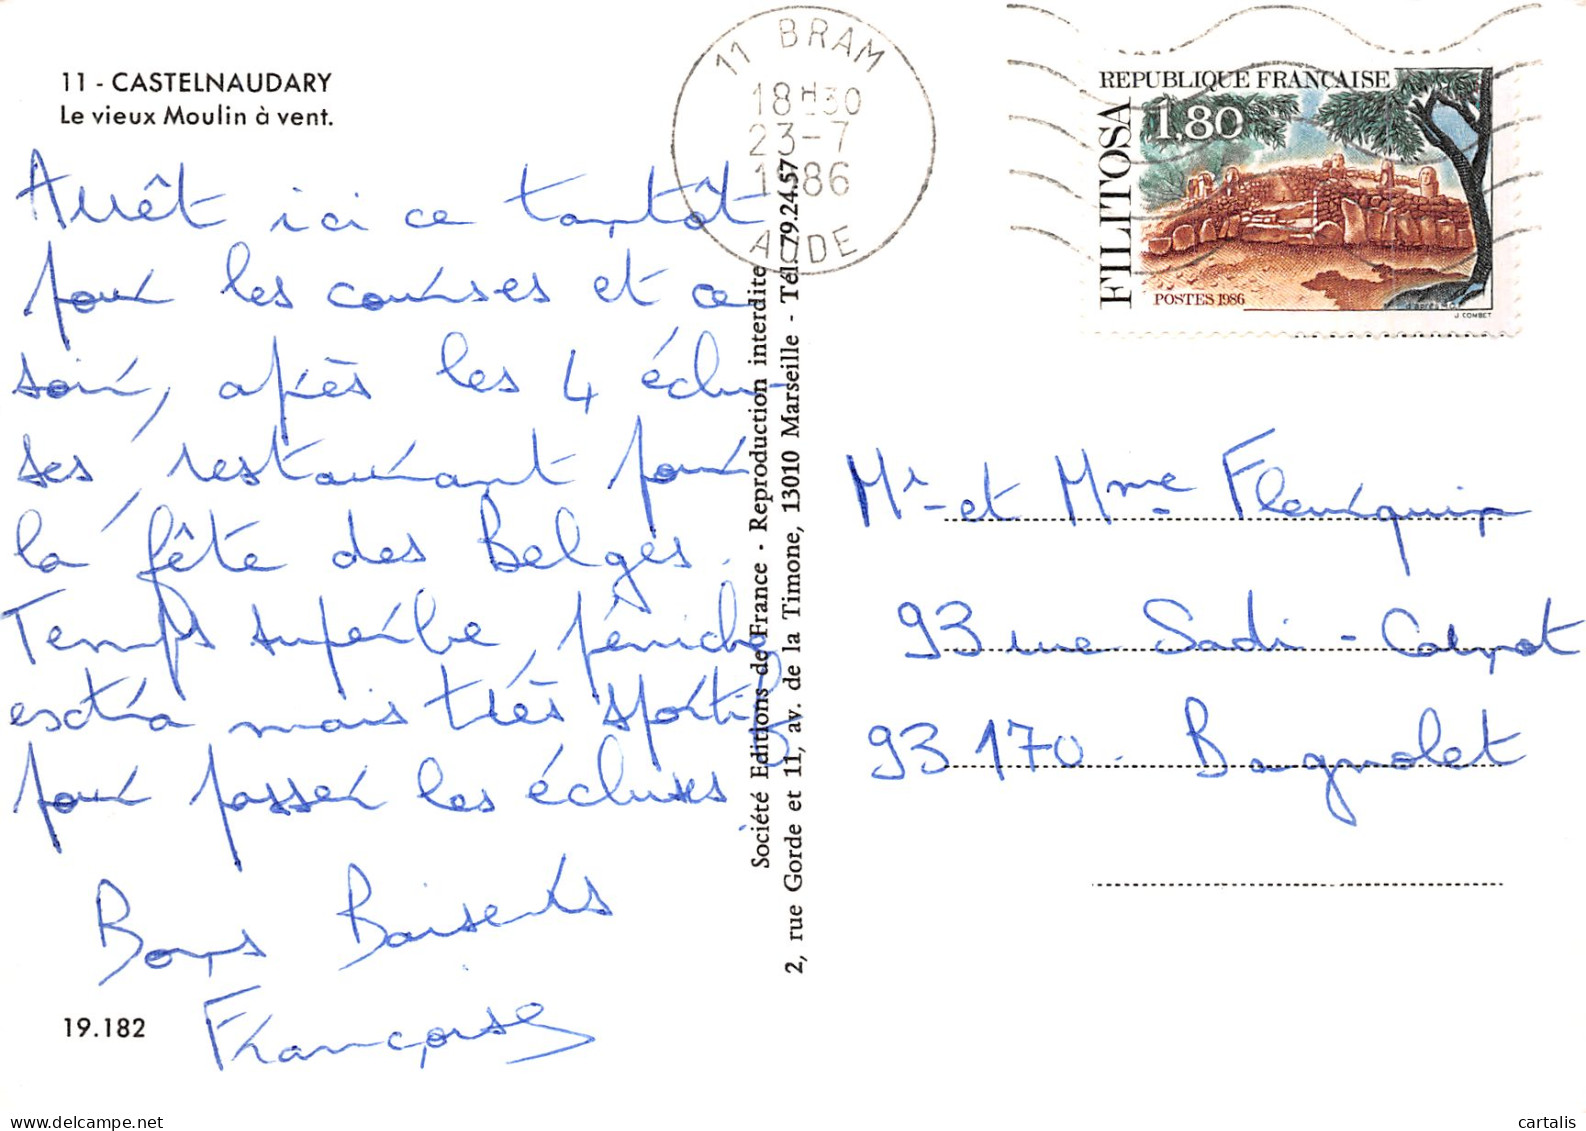 11 - CASTELNAUDARY
Le vieux Moulin à vent.
Arrêt ici ce tantôt
pour les courses et ce
soir, après les 4 éclu-
ses, restaurant pour
la fête des Belges.
Temps superbe, péniche
extra mais très sportif
pour passer les écluses.
Bons Baisers
Françoise
19.182
Société Editions de France - Reproduction interdite
2, rue Gorde et 11, av. de la Timone, 13010 Marseille - Tél. 79.24.57
11 BRAM
18H30
23-7
1986
AUDE
REPUBLIQUE FRANÇAISE
1,80
FILITOSA
POSTES 1986
J. COMBET
Mr et Mme Fleurquin
93 rue Sadi-Carnot
93170 - Bagnolet
cartalis